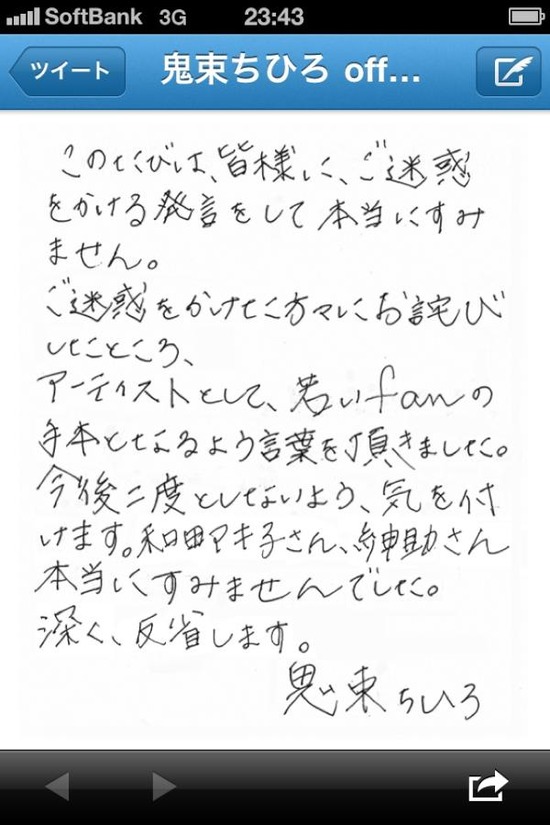 SoftBank 3G 23:43
ツイート 鬼束ちひろ off...
このたびは、皆様に、ご迷惑
をかける発言をして本当にすみ
ません。
ご迷惑をかけた方々にお詫び
したところ、
アーティストとして、若いfanの
手本となるよう言葉を頂きました。
今後二度としないよう、気を付
けます。和田アキ子さん、紳助さん
本当にすみませんでした。
深く、反省します。
鬼束ちひろ